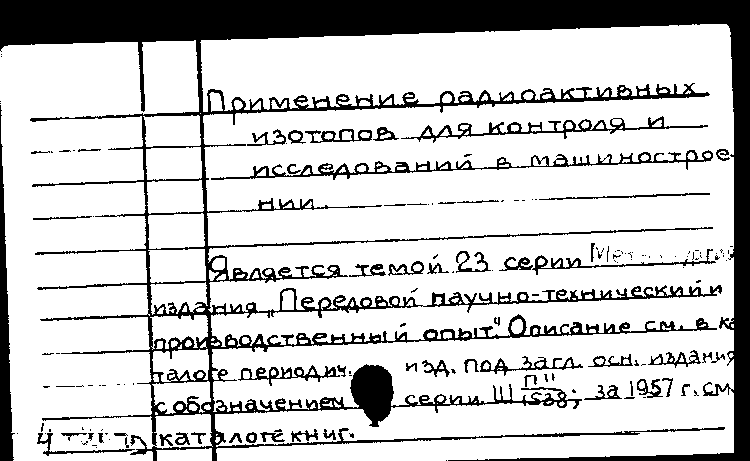 Применение радиоактивных
изотопов для контроля и
исследований в машинострое-
нии.
Является темой 23 серии
издания „Передовой научно-технический и
производственный опыт". Описание см. в ка
талоге периодич. изд. под загл. осн. издания
с обозначением серии Ш П 11/1538; за 1957 г. см.
каталоге книг.